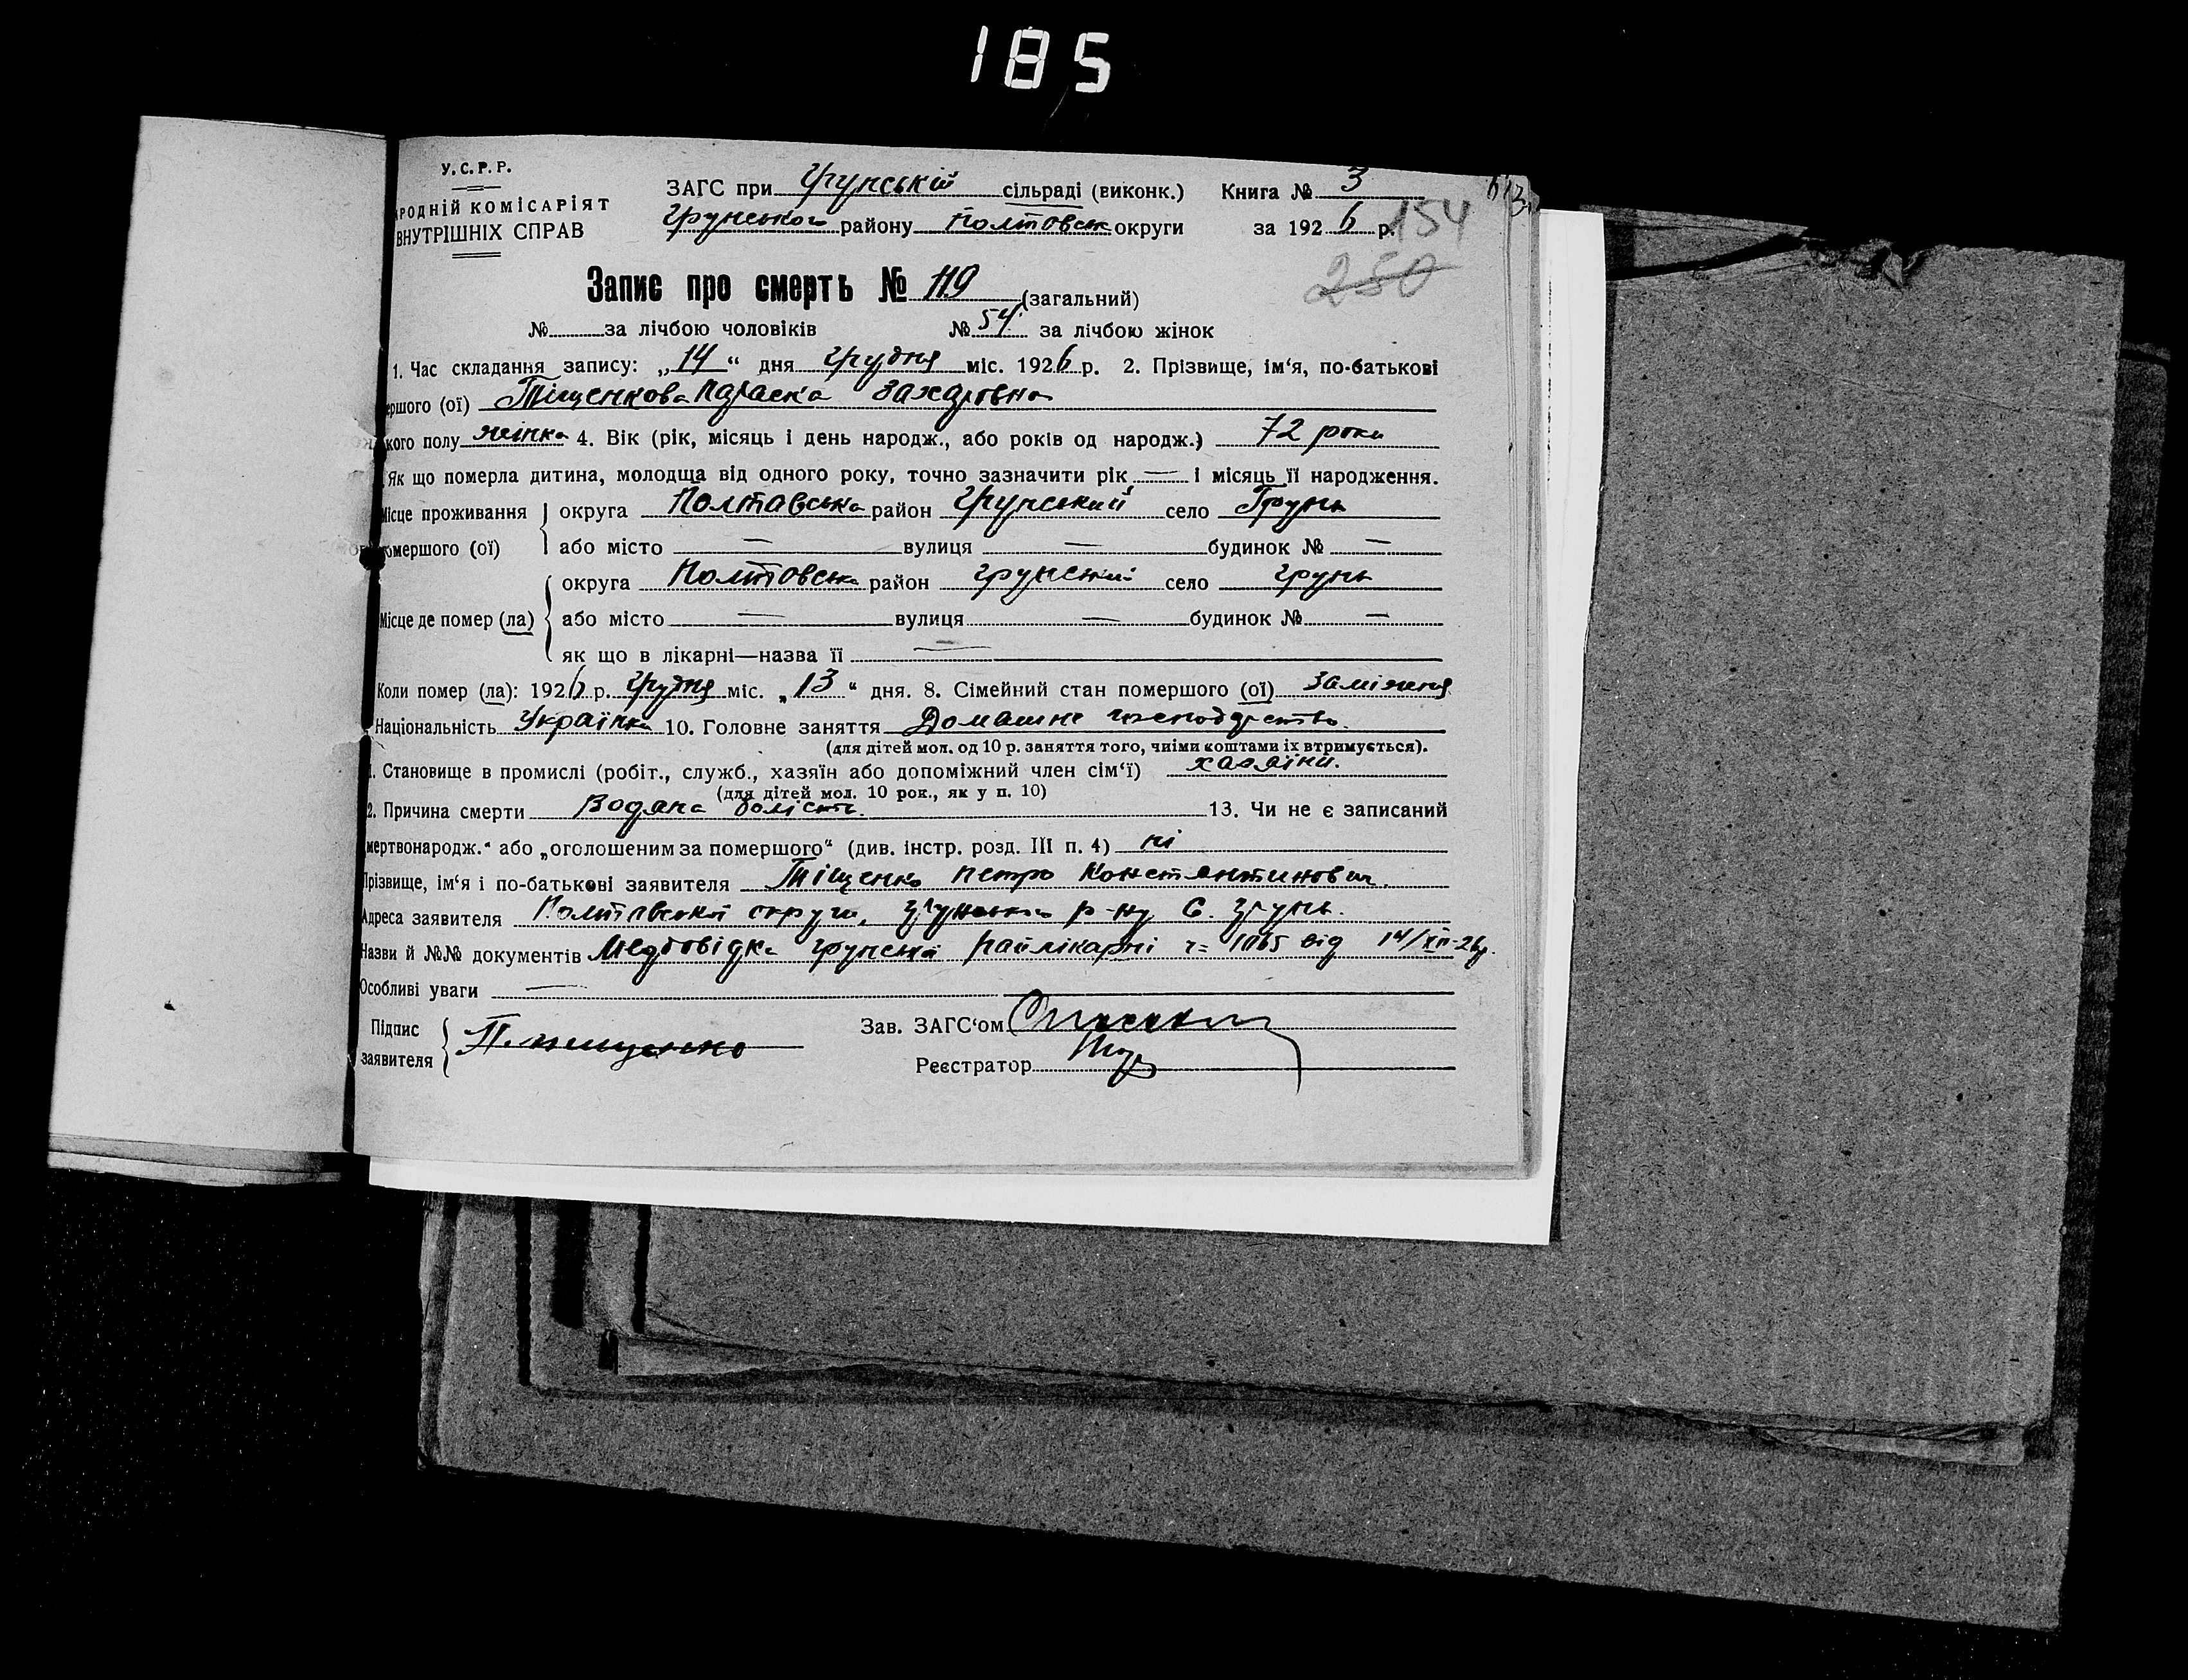 185
У.С.Р.Р.
РОДНІЙ КОМІСАРІЯТ
ВНУТРІШНІХ СПРАВ
ЗАГС при Грунській сільраді (виконк.) Книга № 3
Грунського району Полтовськ округи за 1926 р.
154
250
Запис про смерть № 119 (загальний)
№ за лічбою чоловіків № 54 за лічбою жінок
1. Час складання запису: „14“ дня Грудня міс. 1926 р. 2. Прізвище, ім‘я, по-батькові
ершого (ої) Тіщенкова Параска Захаровна
кого полу жінка 4. Вік (рік, місяць і день народж., або років од народж.) 72 роки
Як що померла дитина, молодща від одного року, точно зазначити рік — і місяць її народження.
Місце проживання округа Полтавська район Грунський село Грунь
омершого (ої) або місто — вулиця — будинок № —
округа Полтовська район Грунський село Грунь
Місце де помер (ла) або місто — вулиця — будинок № —
як що в лікарні—назва її —
Коли помер (ла): 1926 р. Грудня міс. „13“ дня. 8. Сімейний стан помершого (ої) Заміжня
Національність Українка 10. Головне заняття Домашнє господарство.
(для дітей мол. од 10 р. заняття того, чиїми коштами їх втримується).
1. Становище в промислі (робіт., служб., хазяїн або допоміжний член сім‘ї) хазяїни.
(для дітей мол. 10 рок., як у п. 10)
2. Причина смерти Водяна болість. 13. Чи не є записаний
мертвонародж.“ або „оголошеним за помершого“ (див. інстр. розд. III п. 4) ні
Прізвище, ім‘я і по-батькові заявителя Тіщенко Петро Константинович.
Адреса заявителя Полтавської округи, Грунського р-ну С. Грунь.
Назви й №№ документів Медтовідка Грунської райлікарні ч= 1065 від 14/XII-26р.
Особливі уваги —
Підпис заявителя П. Тищенко Зав. ЗАГС‘ом
Реєстратор